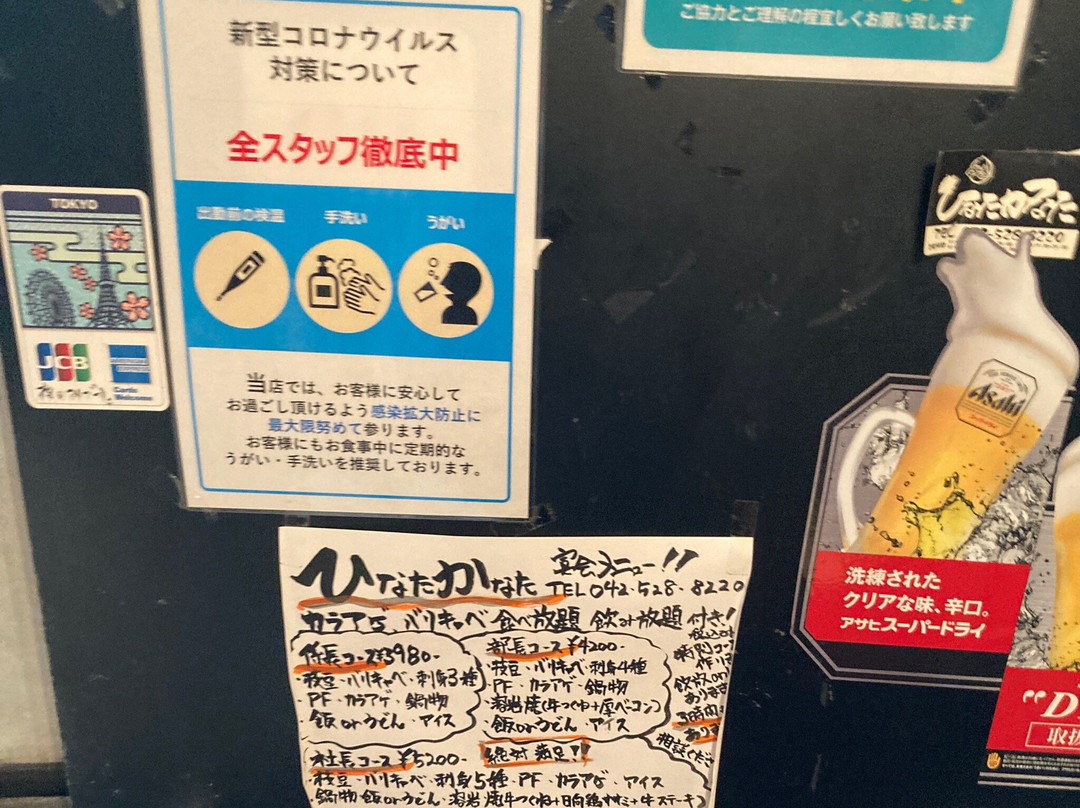 ご協力とご理解の程宜しくお願い致します
新型コロナウイルス
対策について
全スタッフ徹底中
出勤前の検温
手洗い
うがい
当店では、お客様に安心して
お過ごし頂けるよう感染拡大防止に
最大限努めて参ります。
お客様にもお食事中に定期的な
うがい・手洗いを推奨しております。
TOKYO
JCB
AMERICAN EXPRESS
Cards
Welcome
ひなたかなた
Asahi
洗練された
クリアな味、辛口。
アサヒスーパードライ
"D
取扱
ひなたかなた 宴会メニュー!!
TEL042-528-8220
カラアゲ、バリキャベ 食べ放題 飲み放題 付き!
係長コース¥3980-
・枝豆・バリキャベ・刺身3種
・PF・カラアゲ・鍋物
・飯orうどん・アイス
部長コース¥4200-
・枝豆・バリキャベ・刺身4種
・PF・カラアゲ・鍋物
・溶岩焼(牛つくね+厚ベーコン)
・飯orうどん・アイス
3時間
社長コース¥5200-
絶対満足!!
・枝豆・バリキャベ・刺身5種・PF・カラアゲ・アイス